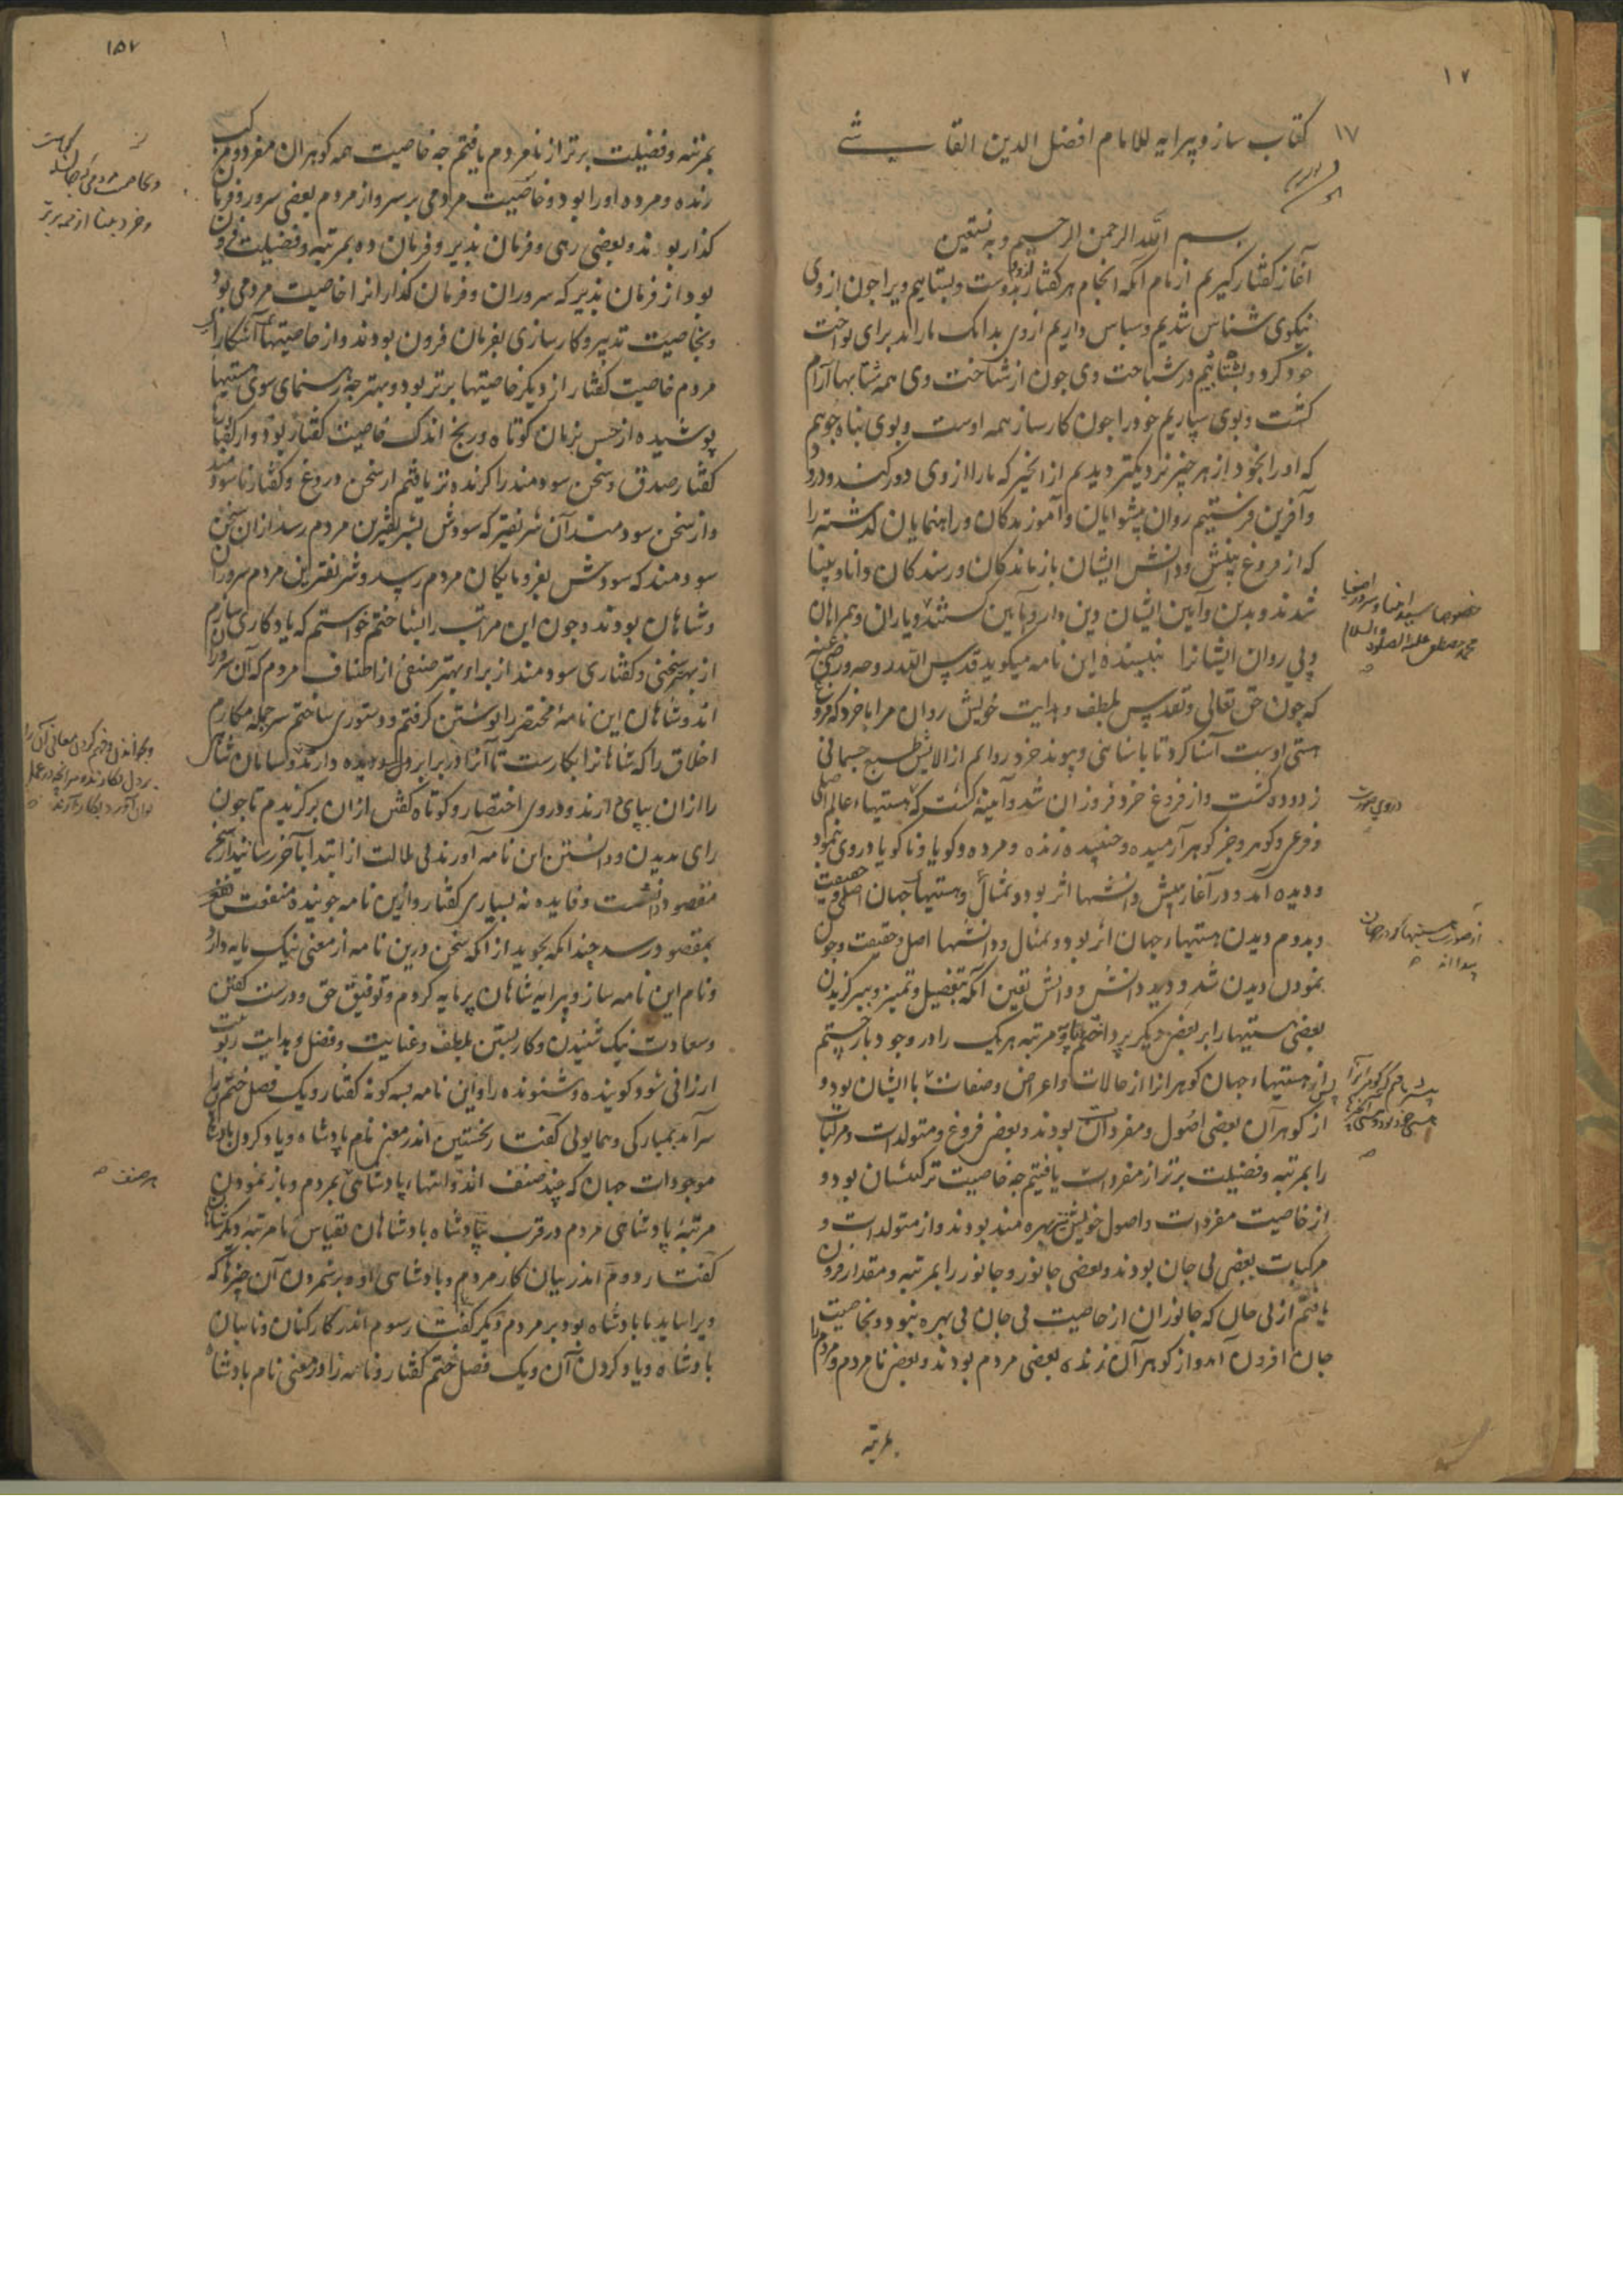 ۱۷
۱۷ کتاب ساز و پیرایه للامام افضل الدین القاشی
بسم الله الرحمن الرحیم و به نستعین
آغاز گفتار گیریم از نام آنکه انجام هر گفتار بدوست و بستاییم ویرا چون از وی
نیکوی شناس شدیم و سپاس داریم از وی بدانک ما را اند برای نواخت
خود کرد و بشتابیم در شناخت وی چون از شناخت وی همه شتابها آرام
گشت و بوی سپاریم خود را چون کارساز همه اوست و بوی پناه جوییم
که او را بخود از هر چیز نزدیکتر دیدیم از انچیز که ما را از وی دور کند و درود
و آفرین فرستیم روان پیشوایان و آموزندگان و راهنمایان گذشته را
که از فروغ بینش و دانش ایشان بازماندگان و رسندگان دانا و بینا
شدند و بدین و آیین ایشان دین دار و بآیین گشتند و یاران و همراهان
خصوصا سید انبیا و سرور اصفیا
محمد مصطفی علیه الصلوة والسلام
و پی روان ایشانرا نبیسنده این نامه میگوید قدس الله روحه و رضی عنه
که چون حق تعالی و تقدس بلطف و هدایت خویش روان مرا با خرد که فروغ
هستی اوست آشنا کرد تا با شناختی و پیوند خرد روانم از الایش طبع جسمانی
زدوده گشت و از فروغ خرد فروزان شد و آیینه گشت که هستیهاء عالم اصلی
و فرعی و گوهر و جز گوهر آرمیده و جنبیده زنده و مرده و گویا و ناگویا در وی نمود
و دیده آمد و در آغاز بینش دانشها اثر بود و تمثال و هستیهاء جهان اصل و حقیقت
و بدوم دیدن هستیهاء جهان اثر بود و تمثال و دانشها اصل و حقیقت و چون
نمودن دیدن شد و دید دانش و دانش یقین آنگه بتفصیل و تمییز و ببرگزیدن
بعضی هستیها را بر بعضی دیگر پرداختم تا مرتبه هر یک را در وجود باز جستم
پس از هستیهاء جهان گوهرانرا از حالات و اعراض و صفات با ایشان بود و
از گوهرآن بعضی اصول و مفردات بودند و بعضی فروع و متولدات و مرکبات
را بمرتبه و فضیلت برتر از مفردات یافتیم چه خاصیت ترکیبشان بود و
از خاصیت مفردات و اصول خویش بهره مند بودند و از متولدات و
مرکبات بعضی بی جان بودند و بعضی جانور و جانور را بمرتبه و مقدار فزون
یافتم از بی جان که جانوران از خاصیت بی جان بی بهره نبود و بخاصیت
جان افزون آمد و از گوهرآن زنده بعضی مردم بودند و بعضی نامردم و مردم را
بمرتبه
۱۵۷
بمرتبه و فضیلت برتر از نامردم یافتم چه خاصیت همه گوهران مفرد و مرکب
زنده و مرده او را بود و خاصیت مردمی بر سر و از مردم بعضی سرور و فرمان
و خرد بینا از همه برتر
گذار بودند و بعضی رهی و فرمان پذیر و فرمان ده بمرتبه و فضیلت فزون
بود از فرمان پذیر که سروران و فرمان گذارانرا خاصیت مردمی بود
و بخاصیت تدبیر و کارسازی بفرمان فزون بودند و از خاصیتهاء آشکارا
مردم خاصیت گفتار از دیگر خاصیتها برتر بود و بهتر چه رهنمای سوی هستیها
پوشیده از حس بزمان کوتاه و رنج اندک خاصیت گفتار بود و از گفتارها
گفتار صدق و سخن سودمند را گزنده تر یافتم از سخن دروغ و گفتار ناسودمند
و از سخن سودمند آن شریفتر که سودش بشریفترین مردم رسد از ان سخن
سودمند که سودش بفرومایگان مردم رسد و شریفترین مردم سروران
و شاهان بودند و چون این مراتب را بشناختم خواستم که یادگاری سازم
از بهر سخنی و گفتاری سودمند از برای بهتر صنفی از اصناف مردم که آن سروران
اند و شاهان این نامه مختصر را نوشتن گرفتم و دستوری ساختم سرجمله مکارم
اخلاق را که شاهانرا بکارست تا آنرا در برابر دل و دیده دارند و بسامان شاهی
را از ان بپای دارند و در وی اختصار و کوتاه گفتن از ان برگزیدم تا چون
رای بدیدن و دانستن این نامه آورند بی ملالت از ابتدا بآخر رسانند چه
مقصود دانشست و فایده نه بسیاری گفتار و ازین نامه جوینده منفعت
بمقصود رسد چندانکه بجوید از آنکه سخن درین نامه از معنی نیک مایه دارد
و نام این نامه ساز و پیرایه شاهان پرمایه کردم و توفیق حق و درست گفتن
و سعادت نیک شنیدن و کار بستن بلطف و عنایت و فضل و هدایت ربوبیت
ارزانی شود گوینده و شنونده را و این نامه بسه گونه گفتار و یک فصل ختم
سر آمد بمبارکی و همایونی گفتار نخستین اندر معنی نام پادشاه و یاد کردن
موجودات جهان که چند صنف اند و انتهاء پادشاهی بمردم و باز نمودن
هر صنف
مرتبه پادشاهی مردم در قرب بپادشاه پادشاهان بقیاس با مرتبه دیگر
گفتار دوم اندر بیان کار مردم و پادشاهی او و برشمردن آن چیزها که
ویرا باید تا پادشاه بود بر مردم دیگر گفتار سوم اندر کارکنان و نایبان
پادشاه و یاد کردن آن و یک فصل ختم گفتار و نامه را و معنی نام پادشاه